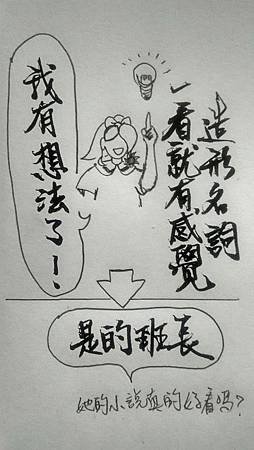 造形名詞
一看就有感覺
我有想法了！
是的班長
她的小說真的好看嗎？